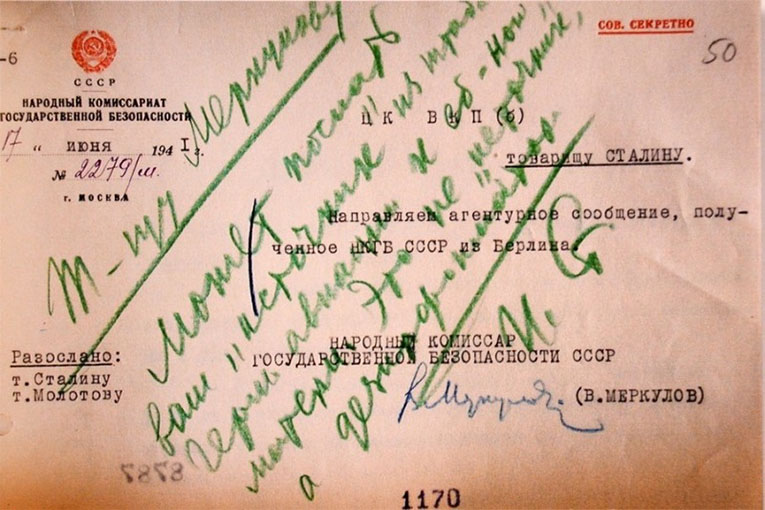 -6
СОВ. СЕКРЕТНО
50
СССР
НАРОДНЫЙ КОМИССАРИАТ
ГОСУДАРСТВЕННОЙ БЕЗОПАСНОСТИ
17 " июня 1941 г.
№ 2279/м.
г. МОСКВА
ЦК ВКП(б)
товарищу СТАЛИНУ.
Направляем агентурное сообщение, полу-
ченное НКГБ СССР из Берлина.
НАРОДНЫЙ КОМИССАР
ГОСУДАРСТВЕННОЙ БЕЗОПАСНОСТИ СССР
(В.МЕРКУЛОВ)
Разослано:
т.Сталину
т.Молотову
Т-щу Меркулову
Может послать
ваш "источник" из штаба
герм. авиации к еб-ной
матери. Это не "источник",
а дезинформатор.
И. Ст
1170